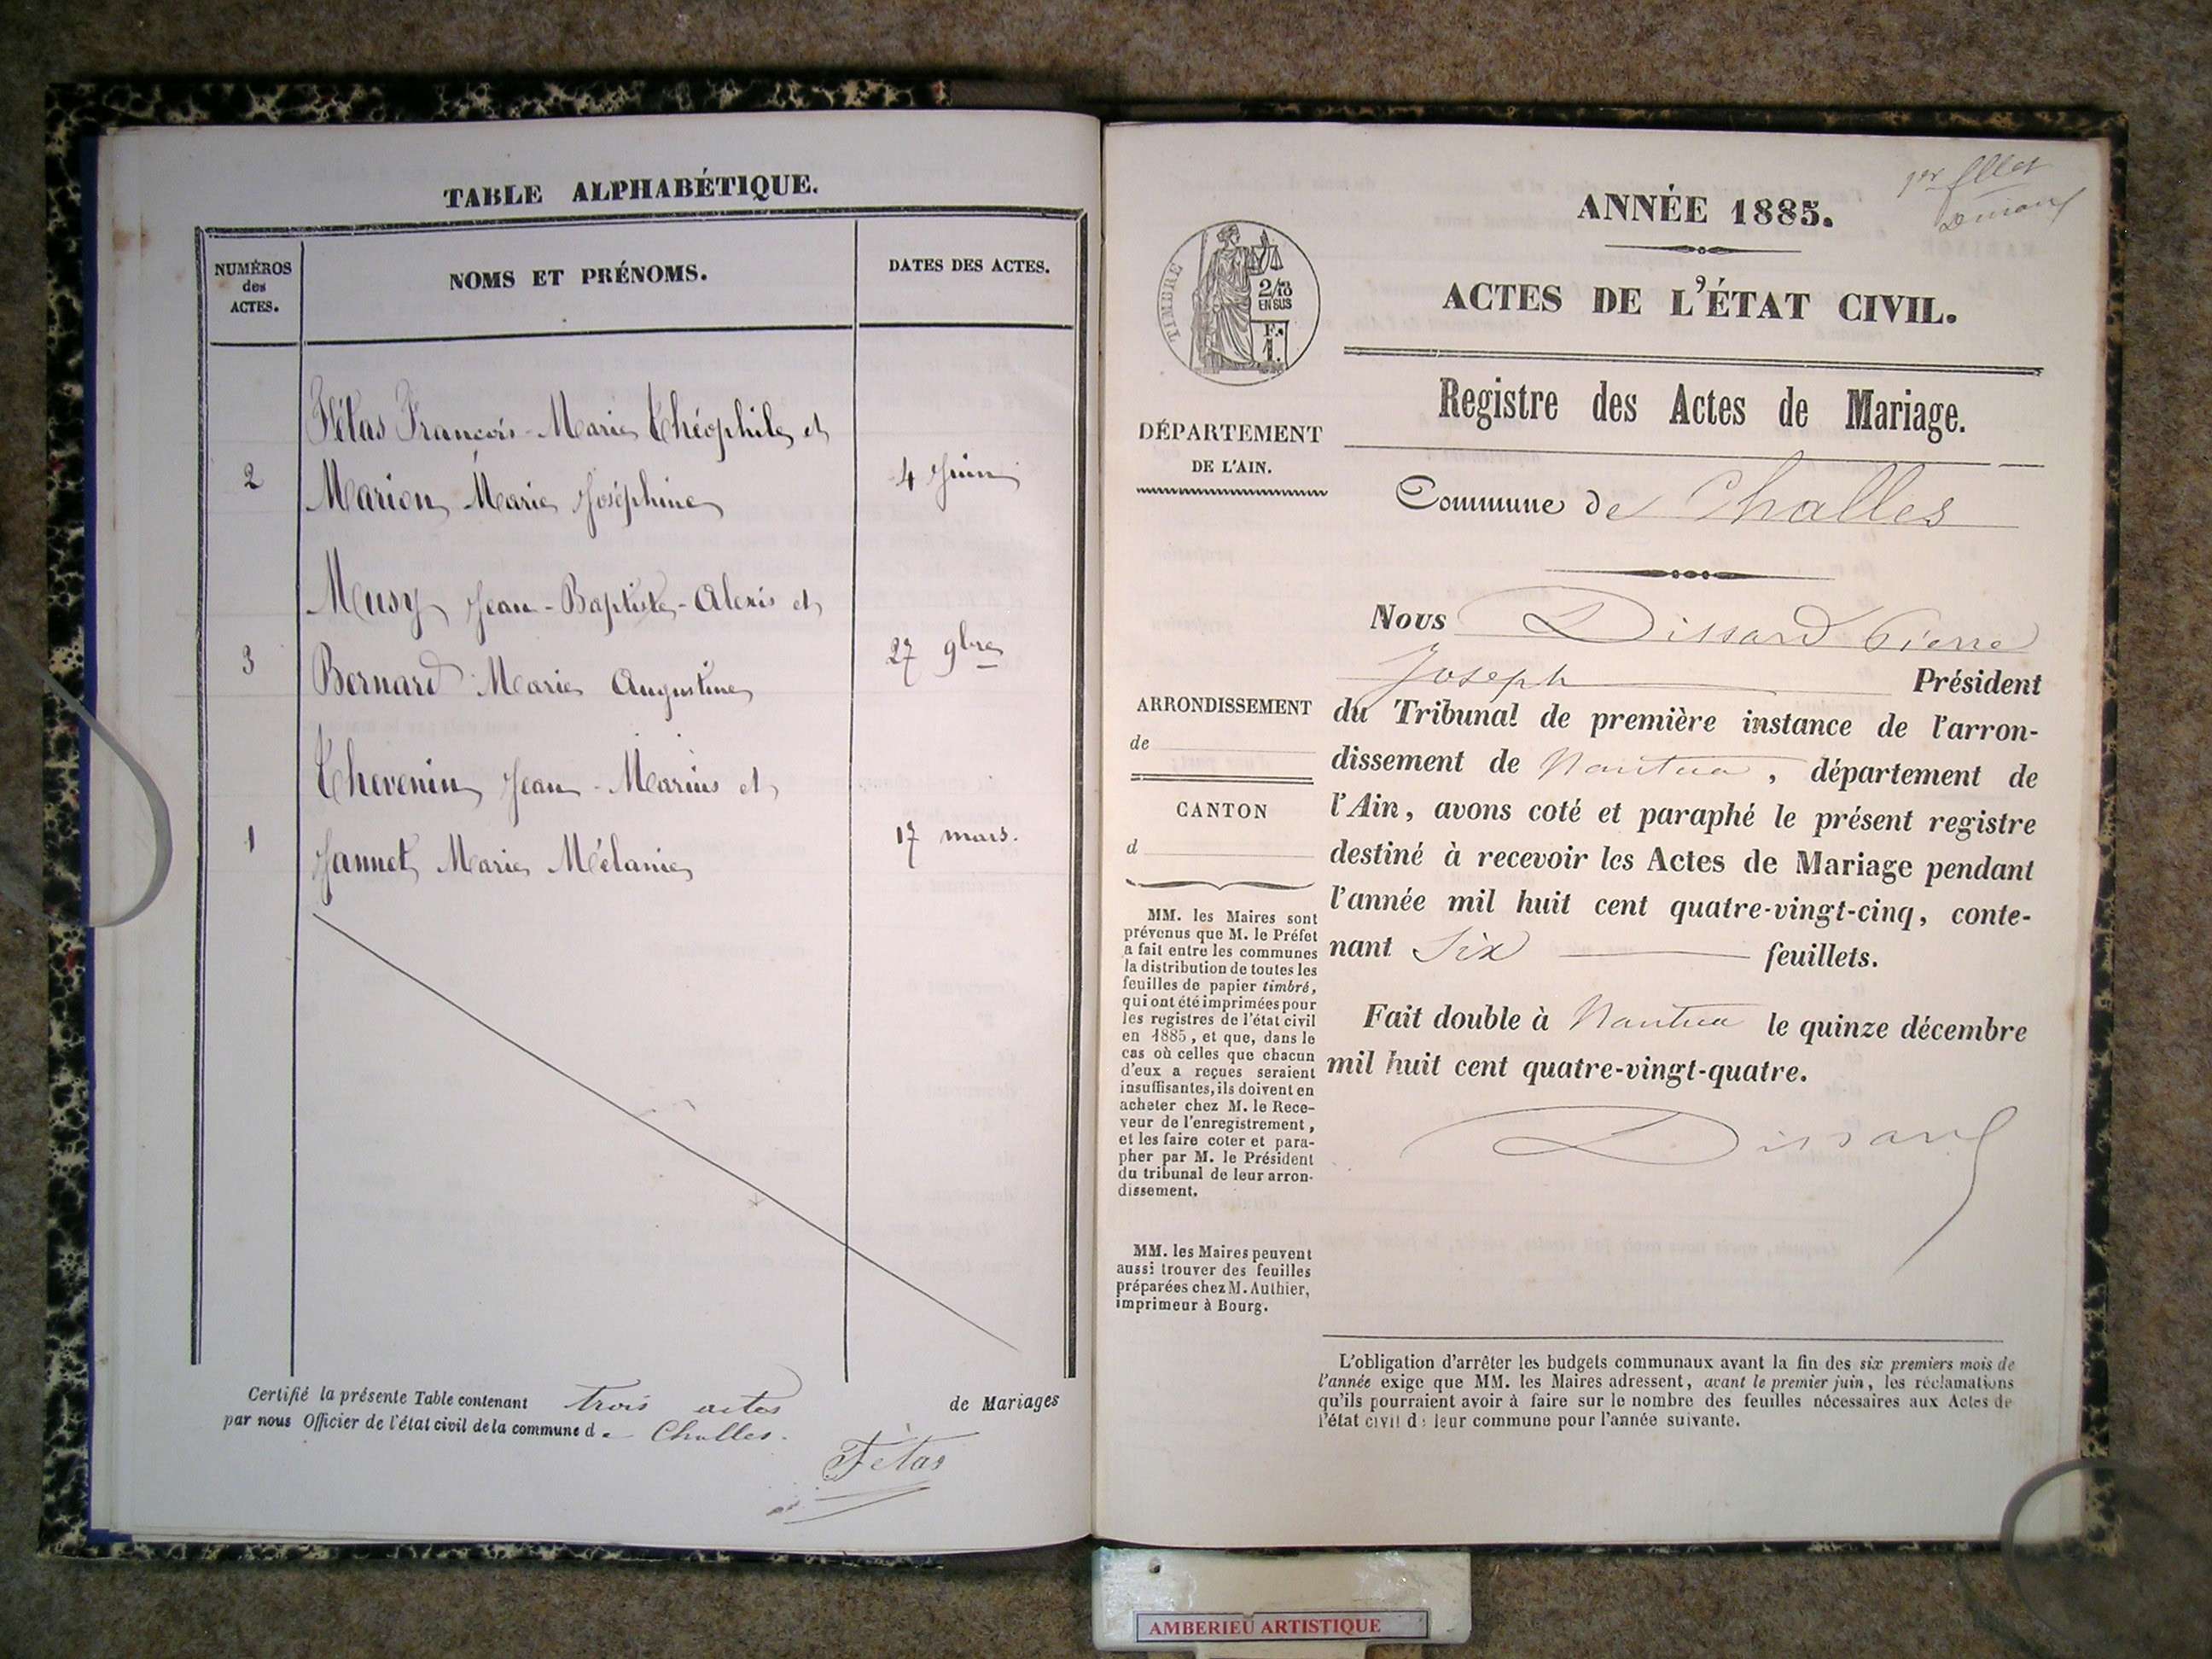 TABLE ALPHABÉTIQUE.
NUMÉROS
des
ACTES.
NOMS ET PRÉNOMS.
DATES DES ACTES.
Fétas François-Marie Théophile et
2
Marion Marie Joséphine
4 Juin
Musy Jean-Baptiste-Alexis et
3
Bernard Marie Augustine
27 9bre
Thevenin Jean-Marius et
1
Jannet Marie Mélanie
17 mars.
Certifié la présente Table contenant trois actes de Mariages
par nous Officier de l'état civil de la commune de Challes.
Fétas
1er fllet
ANNÉE 1885.
ACTES DE L'ÉTAT CIVIL.
TIMBRE
2/10
EN SUS
F.
1.
DÉPARTEMENT
DE L'AIN.
ARRONDISSEMENT
de
CANTON
d
MM. les Maires sont
prévenus que M. le Préfet
a fait entre les communes
la distribution de toutes les
feuilles de papier timbré,
qui ont été imprimées pour
les registres de l'état civil
en 1885, et que, dans le
cas où celles que chacun
d'eux a reçues seraient
insuffisantes, ils doivent en
acheter chez M. le Rece-
veur de l'enregistrement,
et les faire coter et para-
pher par M. le Président
du tribunal de leur arron-
dissement.
MM. les Maires peuvent
aussi trouver des feuilles
préparées chez M. Authier,
imprimeur à Bourg.
Registre des Actes de Mariage.
Commune de Challes
Nous Dissard Pierre
Joseph Président
du Tribunal de première instance de l'arron-
dissement de Nantua, département de
l'Ain, avons coté et paraphé le présent registre
destiné à recevoir les Actes de Mariage pendant
l'année mil huit cent quatre-vingt-cinq, conte-
nant Six feuillets.
Fait double à Nantua le quinze décembre
mil huit cent quatre-vingt-quatre.
Dissard
L'obligation d'arrêter les budgets communaux avant la fin des six premiers mois de
l'année exige que MM. les Maires adressent, avant le premier juin, les réclamations
qu'ils pourraient avoir à faire sur le nombre des feuilles nécessaires aux Actes de
l'état civil de leur commune pour l'année suivante.
AMBERIEU ARTISTIQUE